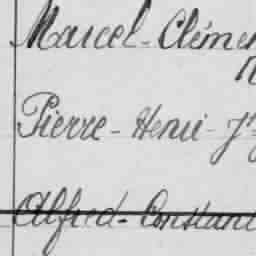 Marcel-Clémen
Pierre-Henri-J
Alfred-Constant